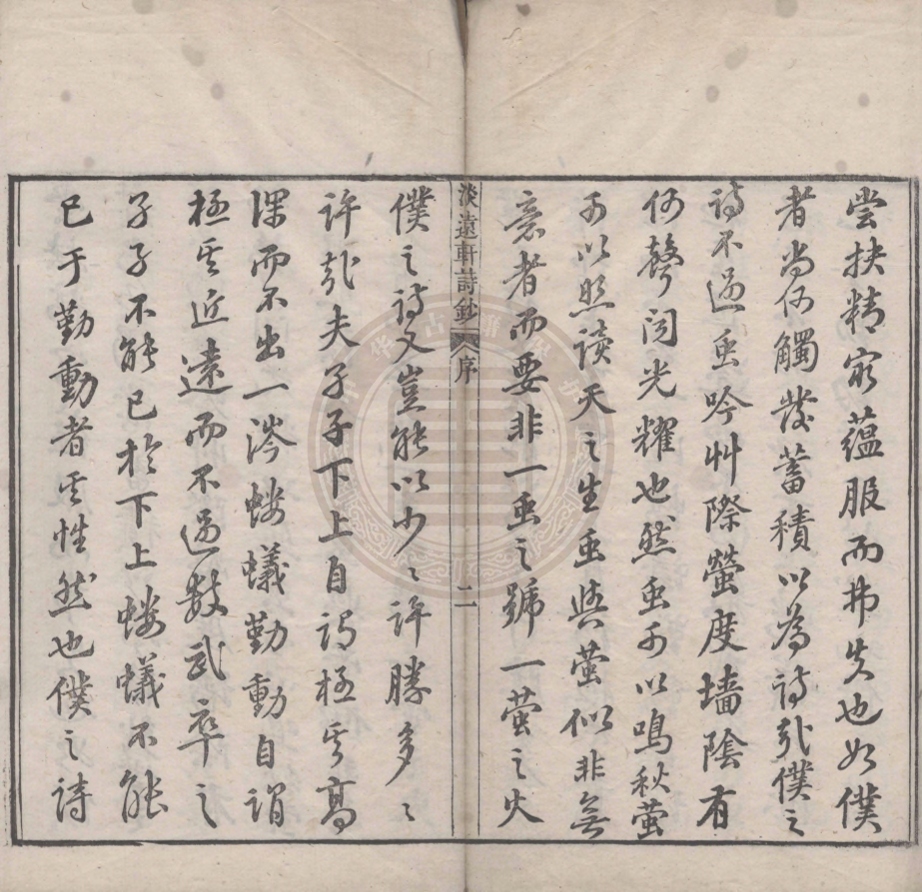 嘗抉精窮蘊服而弗失也如僕
者尚何觸發蓄積以為詩哉僕之
詩不過虫吟艸際螢度墻陰有
何聲聞光耀也然虫可以鳴秋螢
可以照讀天之生虫與螢似非無
意者而要非一虫之號一螢之火
淡遠軒詩鈔 序 二
僕之詩又豈能以少之許勝多之
許哉夫孑孑下上自謂極其高
深而不出一涔螻蟻勤動自謂
極其近遠而不過數武卒之
孑孑不能已於下上螻蟻不能
已于勤動者其性然也僕之詩